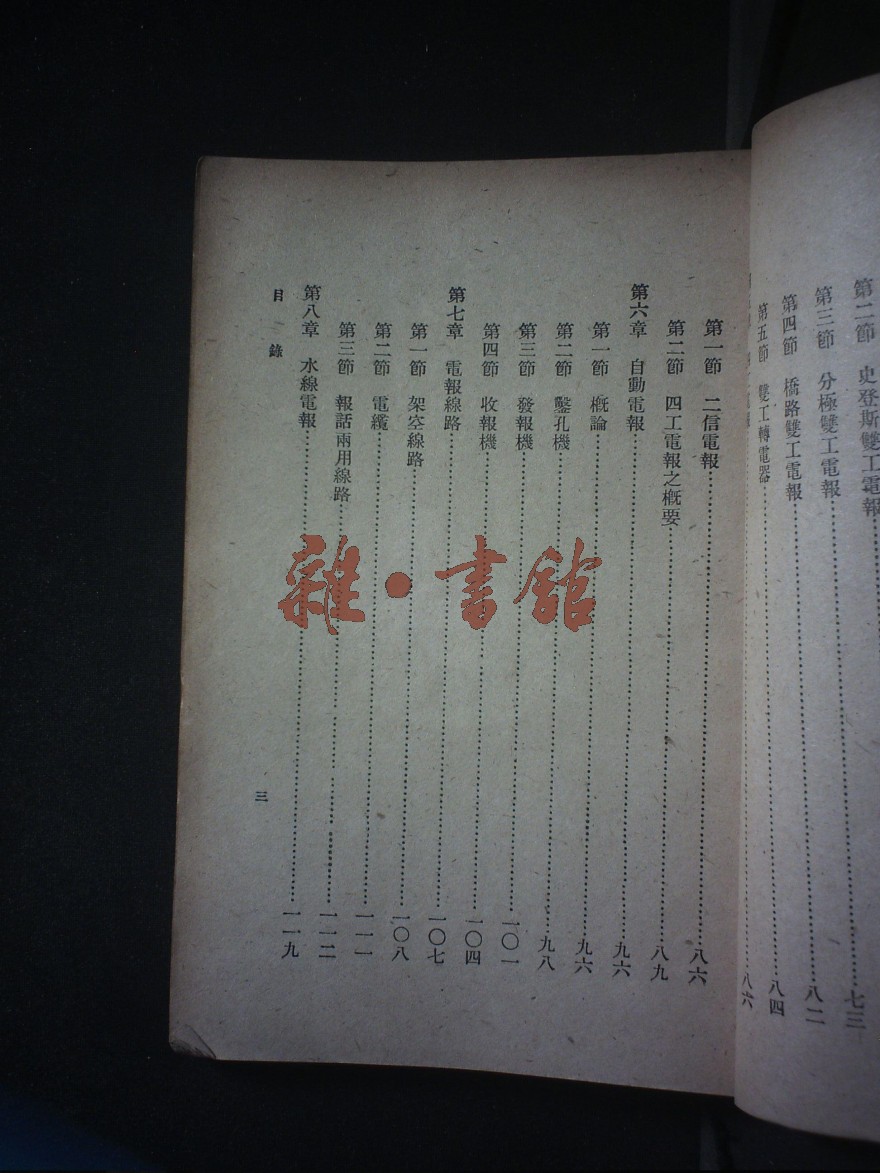 第二節 史登斯雙工電報……七三
第三節 分極雙工電報……八二
第四節 橋路雙工電報……八四
第五節 雙工轉電器
八六
第一節 二信電報……八六
第二節 四工電報之概要……八九
第六章 自動電報……九六
第一節 概論……九六
第二節 鑿孔機……九八
第三節 發報機……一〇一
第四節 收報機……一〇四
第七章 電報線路……一〇七
第一節 架空線路……一〇八
第二節 電纜……一一一
第三節 報話兩用線路……一一二
第八章 水線電報……一一九
目錄
三
雜·書館